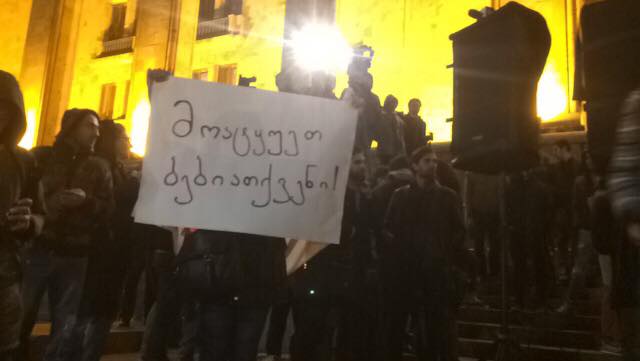 მოატყუეთ
ბებიათქვენი!